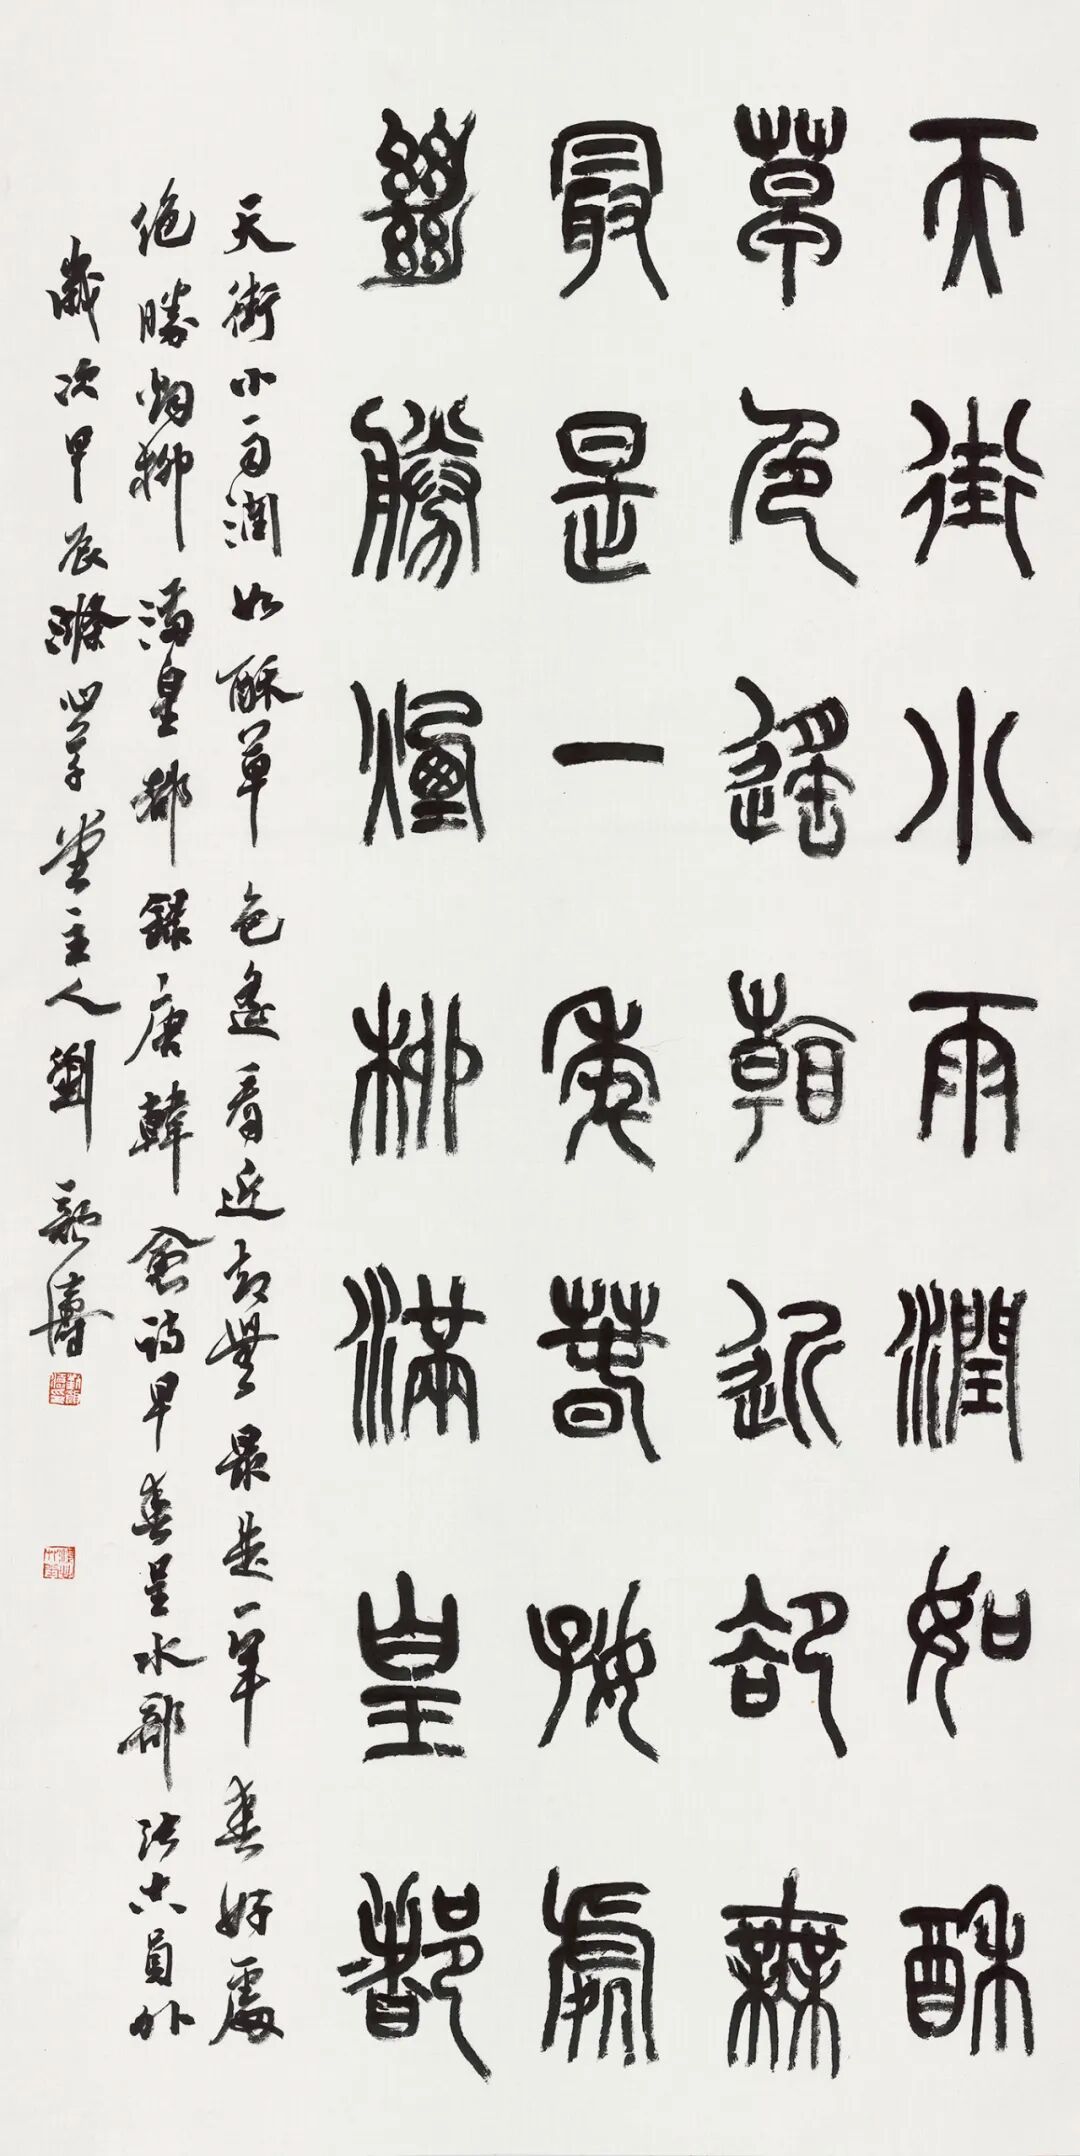 天街小雨潤如酥
草色遥看近却無
最是一年春好處
絕勝煙柳滿皇都
天街小雨潤如酥草色遥看近却無最是一年春好處
絕勝烟柳滿皇都錄唐韓愈詩早春呈水部張十八員外
歲次甲辰滌心草堂主人劉新濤